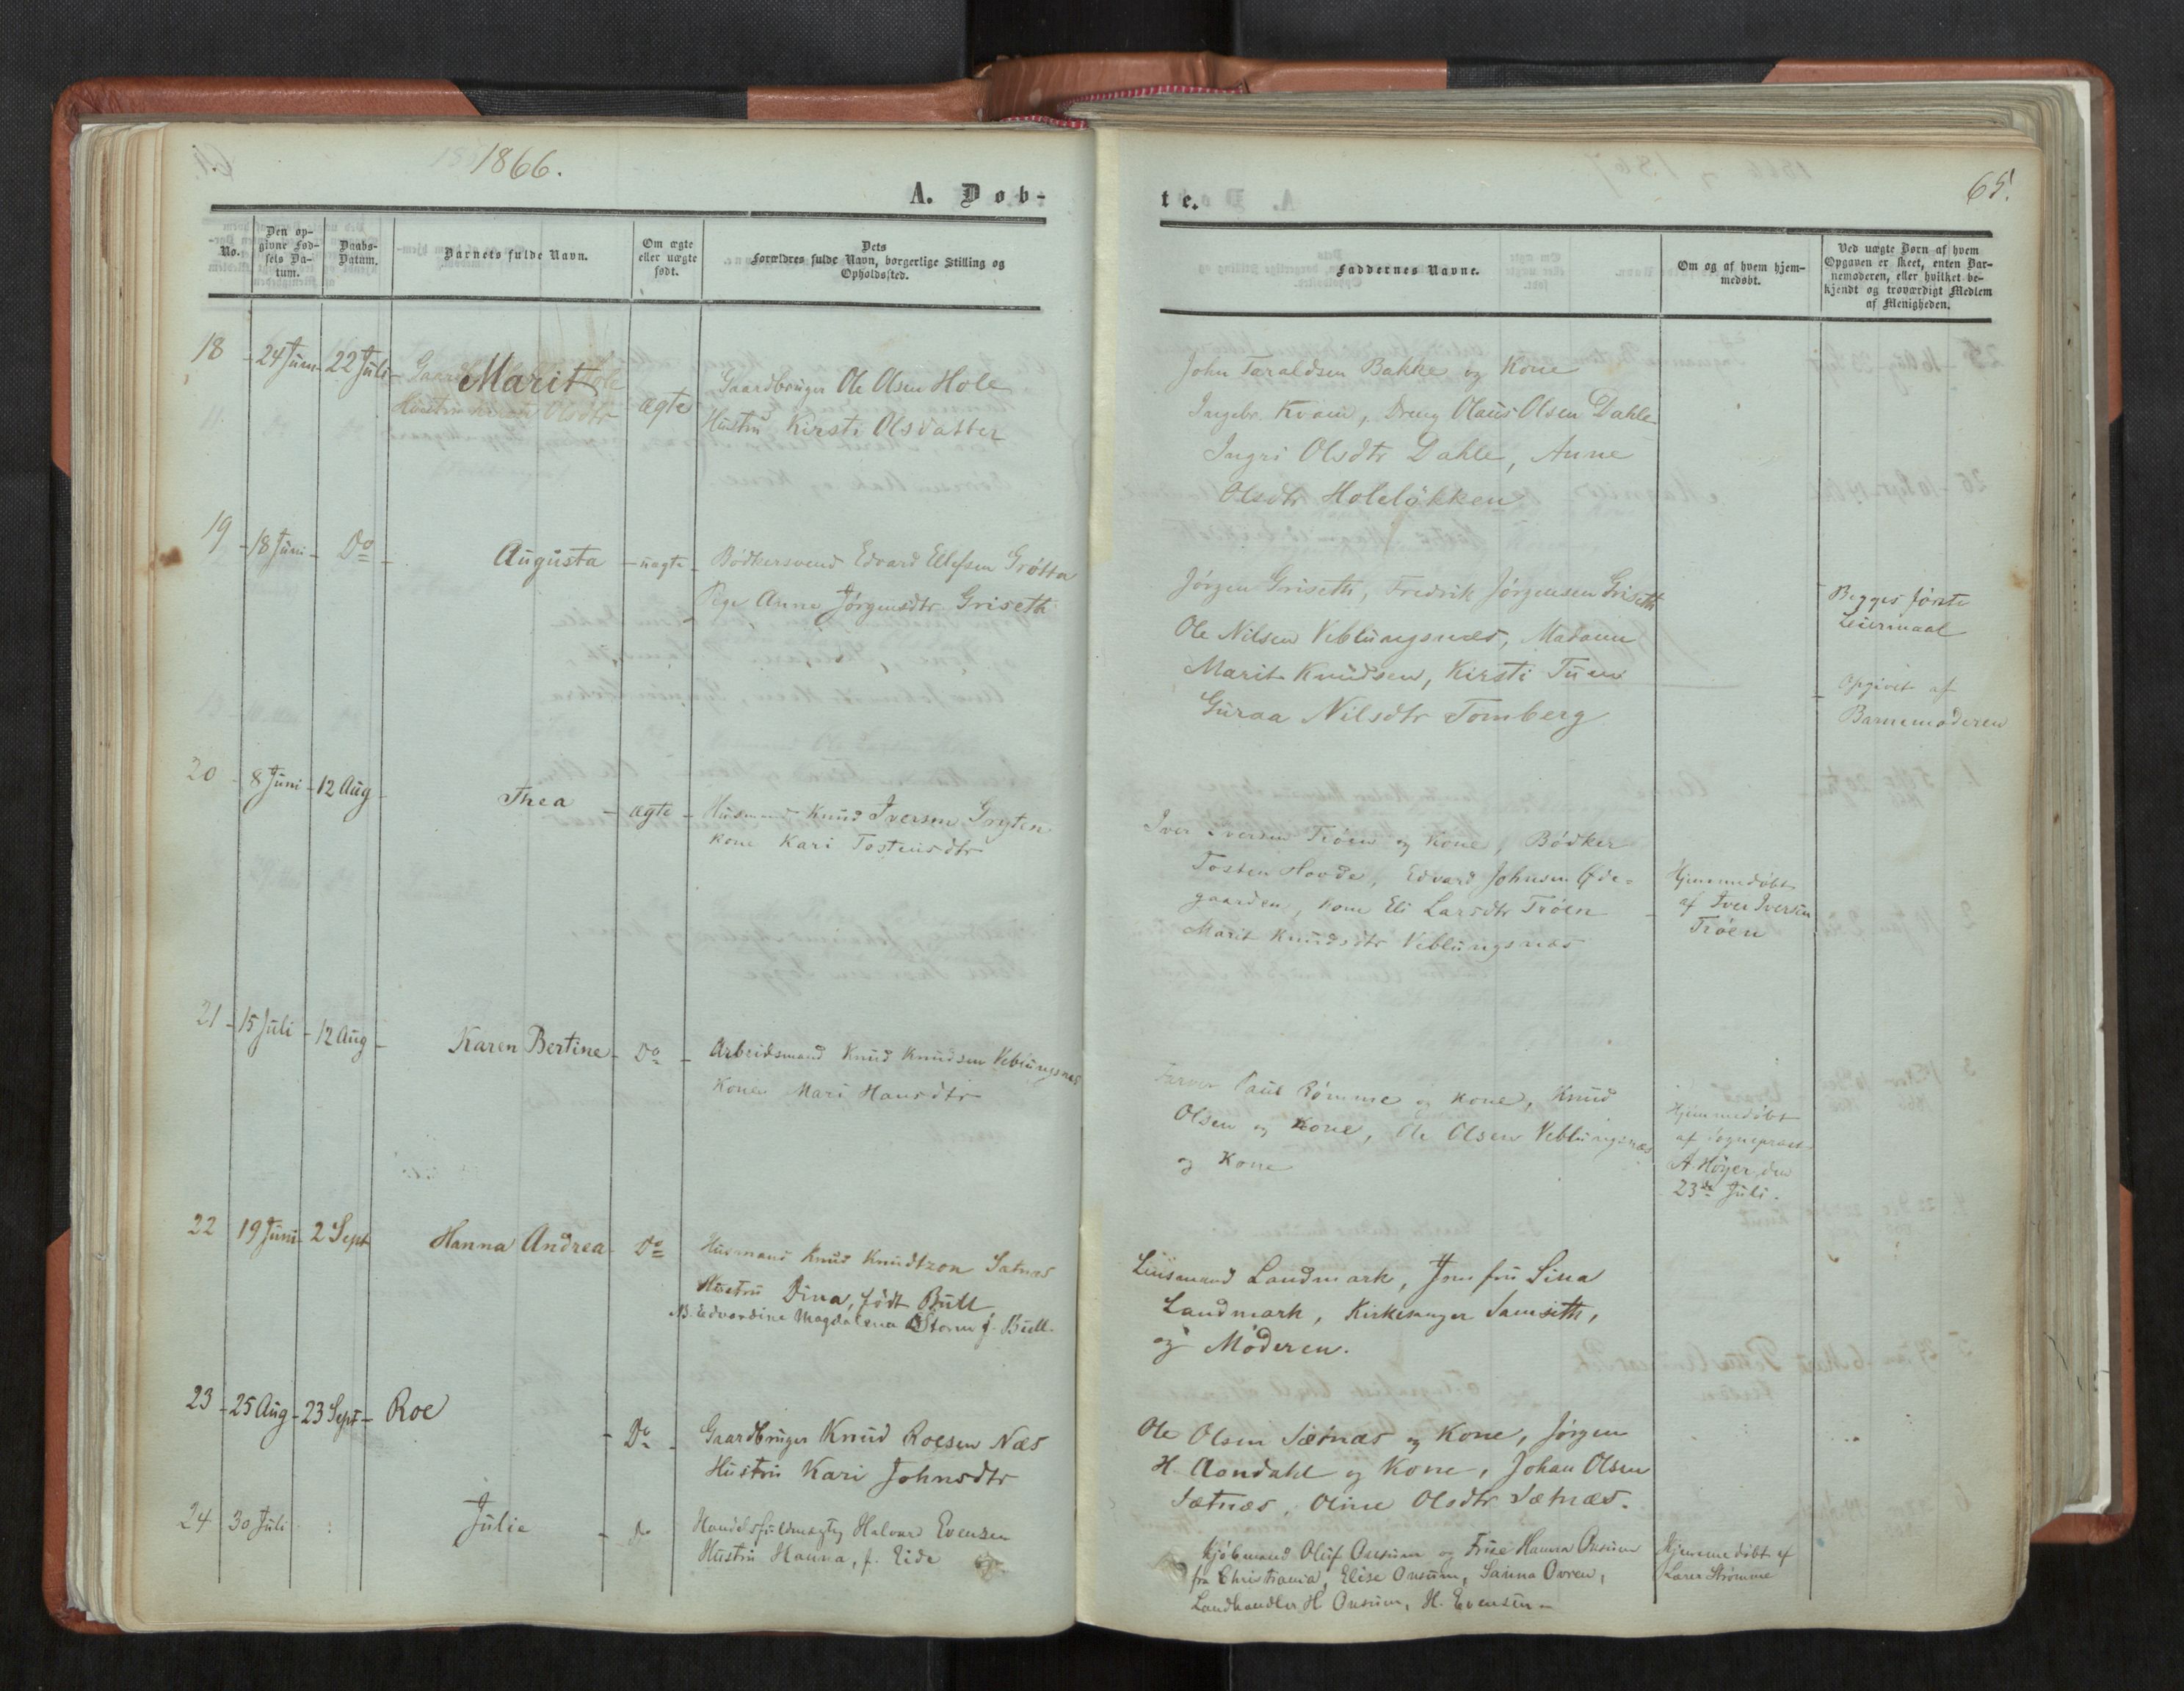 1866.
65.
A. Døb-
te.
No.
Den op-
givne Fød-
sels Da-
tum.
Daabs-
Datum.
Barnets fulde Navn.
Om ægte
eller uægte
født.
Dets
Forældres fulde Navn, borgerlige Stilling og
Opholdssted.
Faddernes Navne.
Om og af hvem hjem-
medøbt.
Ved uægte Børn af hvem
Opgaven er skeet, enten Bar-
nemoderen, eller hvilket be-
kjendt og troværdigt Medlem
af Menigheden.
18 - 24 Juni - 22 Juli - Marit - ægte
Gaardbruger Ole Olsen Hole
Hustru Kirsti Olsdatter
John Taraldsen Bakke og Kone
Ingebr. Kvam, Dreng Olaus Olsen Dahle
Ingri Olsdtr Dahle, Anne
Olsdtr Holeløkken
19 - 18 Juni - Do - Augusta - uægte - Bødkersvend Edvard Ellefsen Grøtta
Pige Anne Jørgensdtr. Griseth
Jørgen Griseth, Fredrik Jørgensen Griseth
Ole Nilsen Veblungsnæs, Madame
Marit Knudsen, Kirsti Tuen
Guraa Nilsdtr Tomberg
Begges første
Leiermaal
Opgivet af
Barnemoderen
20 - 8 Juni - 12 Aug - Thea - ægte - Husmand Knud Iversen Gryten
Kone Kari Tostensdtr
Iver Iversen Trøen og Kone, Bødker
Tosten Hovde, Edvard Johnsen Øde-
gaarden, Kone Eli Larsdtr Trøen
Marit Knudsdtr Veblungsnæs
Hjemmedøbt
af Iver Iversen
Trøen
21 - 15 Juli - 12 Aug - Karen Bertine - Do - Arbeidsmand Knud Knudsen Veblungsnæs
Kone Mari Hansdtr
Farver Paul Rømme og Kone, Knud
Olsen og Kone, Ole Olsen Veblungsnæs
og Kone
Hjemmedøbt
af Sognepræst
A. Høyer, den
23de Juli.
22 19 Juni - 2 Sept Hanna Andrea - Do Husmand Knud Knudtzon Sætnæs
Hustru Dina, født Bull
NB. Edvardine Magdalena Storm f. Bull.
Lensmand Landmark, Jomfru Sina
Landmark, Kirkesanger Samseth,
og Moderen.
23 - 25 Aug - 23 Sept - Roe - Do - Gaardbruger Knud Roesen Næs
Hustru Kari Johnsdtr
Ole Olsen Sætnæs og Kone, Jørgen
H. Aandahl og Kone, Johan Olsen
Sætnæs, Oline Olsdtr Sætnæs.
24 30 Juli Julie - Do Handelsfuldmægtig Halvard Evensen
Hustru Hanna, f. Eide
Kjøbmand Oluf Onsum og Frue Hanna Onsum
fra Christiania, Elise Onsum, Sanna Ovren,
Landhandler H Onsum, H. Evensen -
Hjemmedøbt af
Lærer Strømme